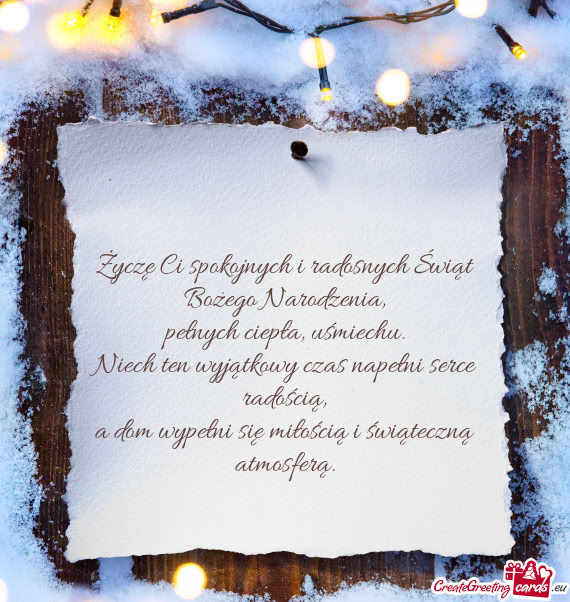 Życzę Ci spokojnych i radosnych Świąt
Bożego Narodzenia,
pełnych ciepła, uśmiechu.
Niech ten wyjątkowy czas napełni serce
radością,
a dom wypełni się miłością i świąteczną
atmosferą.
CreateGreeting cards .eu